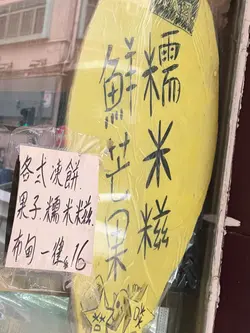 鮮芒果
糯米糍
各式凍餅.
果子糯米糍.
布甸一樣$16